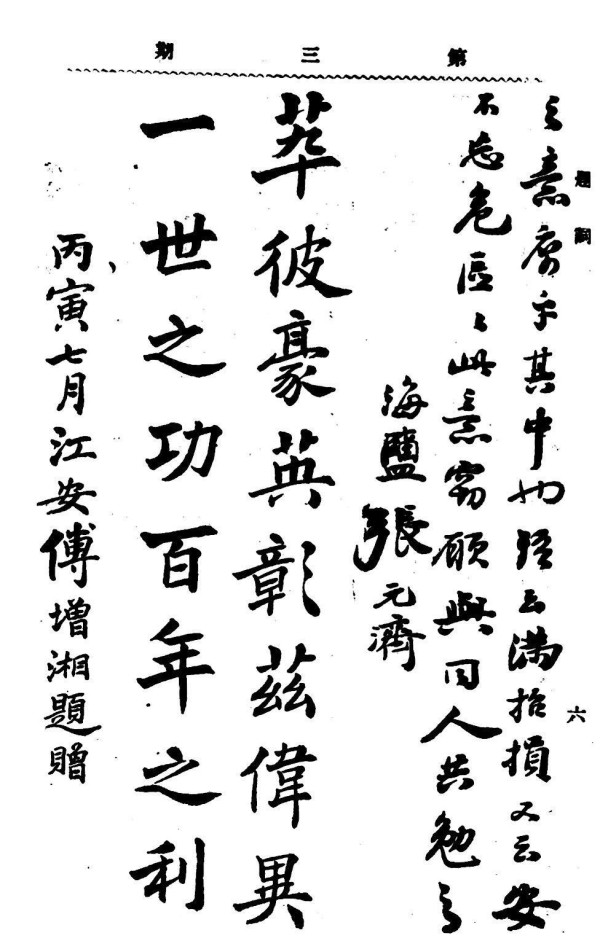 第三期
題詞
六
之意寓乎其中也語云滿招損又云安
不忘危區々此意竊願與同人共勉之
海鹽張元濟
萃彼豪英彰茲偉異
一世之功百年之利
丙寅七月江安傅增湘題贈